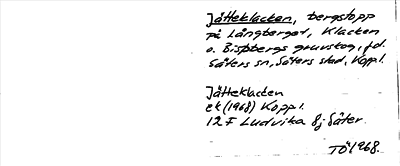 Jätteklacken, bergstopp
på Långberget, Klacken
o. Bispbergs gruvskog, f.d.
Säters sn, Säters stad, Koppl.
Jätteklacken
ek (1968) Koppl.
12 F Ludvika 8j Säter
TÖ 1968.